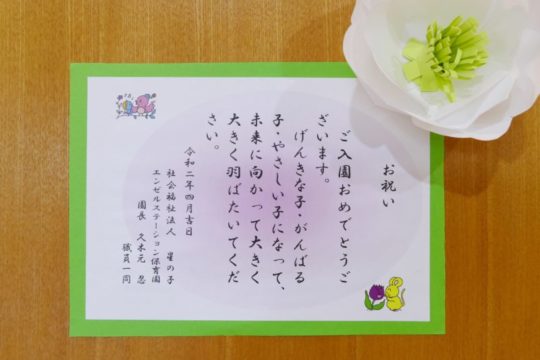 お祝い
ご入園おめでとうご
ざいます。
げんきな子・がんばる
子・やさしい子になって、
未来に向かって大きく
大きく羽ばたいてくだ
さい。
令和二年四月吉日
社会福祉法人 星の子
エンゼルステーション保育園
園長 久木元 忍
職員一同